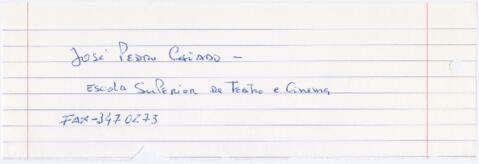 José Pedro Caiado -
Escola Superior de Teatro e Cinema
FAX-3470273